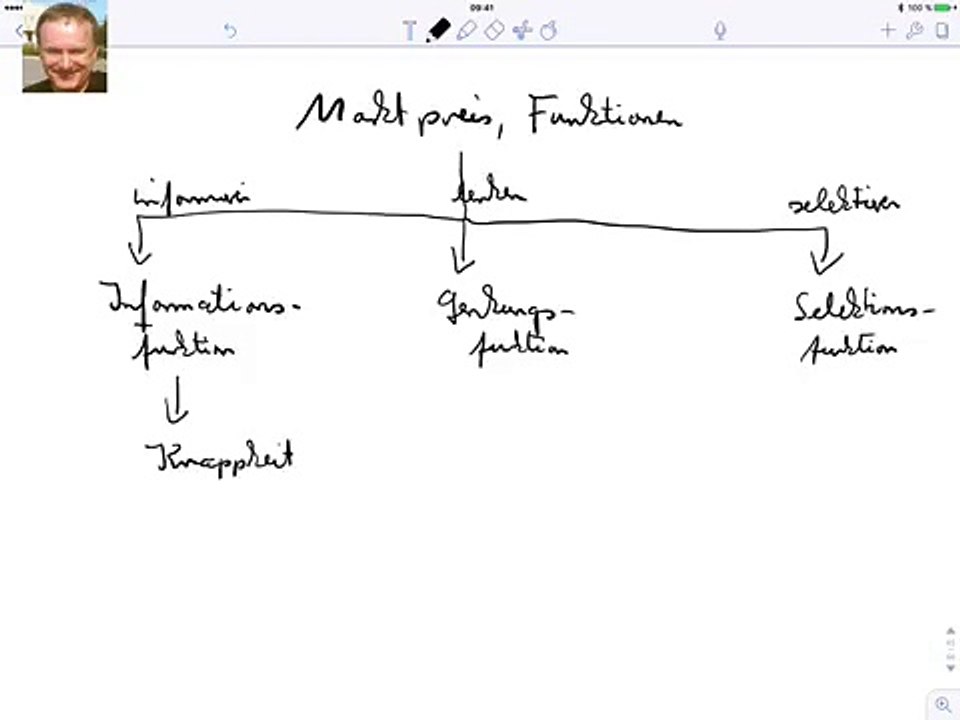 09:41
100 %
T
Marktpreis, Funktionen
informieren
lenken
selektieren
Informations-
funktion
Lenkungs-
funktion
Selektions-
funktion
Knappheit